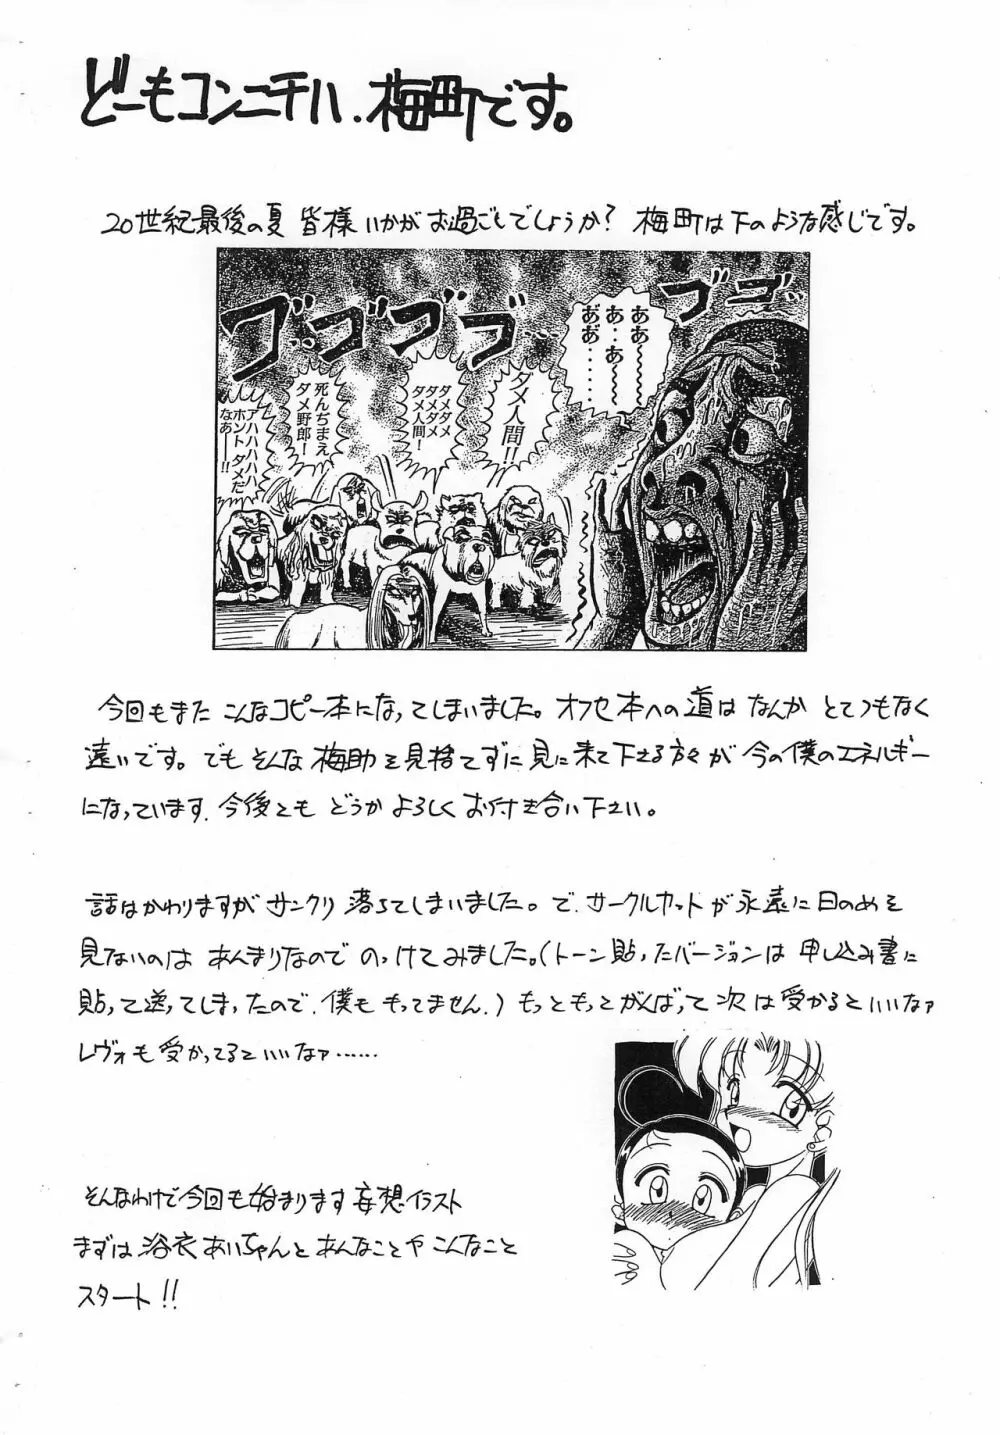 どーもコンニチハ、梅町です。
20世紀最後の夏 皆様いかがお過ごしでしょうか? 梅町は下のような感じです。
ゴゴ…
ああ〜〜〜
あ…あ〜〜
あ゛あ゛……
ゴゴゴゴ
ダメ人間!!
ダメダメ
ダメダメ
ダメ人間!
死んちまえ
ダメ野郎!
アハハハハハ
ホントダメだ
なあー!!
今回もまた こんなコピー本になってしまいました。オフセ本への道は なんか とてつもなく
遠いです。でも そんな 梅助を見捨てずに見に来て下さる方々が 今の僕のエネルギー
になっています。今後とも どうか よろしく お付き合い下さい。
話はかわりますが サンクリ 落ちてしまいました。で、サークルカットが永遠に日のめを
見ないのは あんまりなので のっけてみました。(トーン貼ったバージョンは 申し込み書に
貼って送ってしまったので、僕も もってません。) もっともっとがんばって 次は受かるといいなァ
レヴォも受かってるといいなァ……
そんなわけで今回も始まります妄想イラスト
まずは 浴衣あいちゃんと あんなことや こんなこと
スタート!!